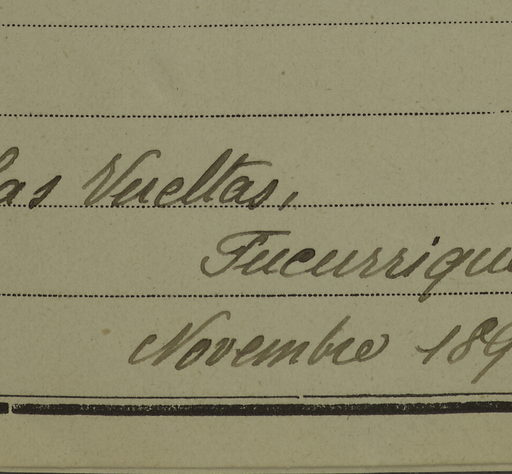 las Vueltas,
Tucurrique
Novembre 189